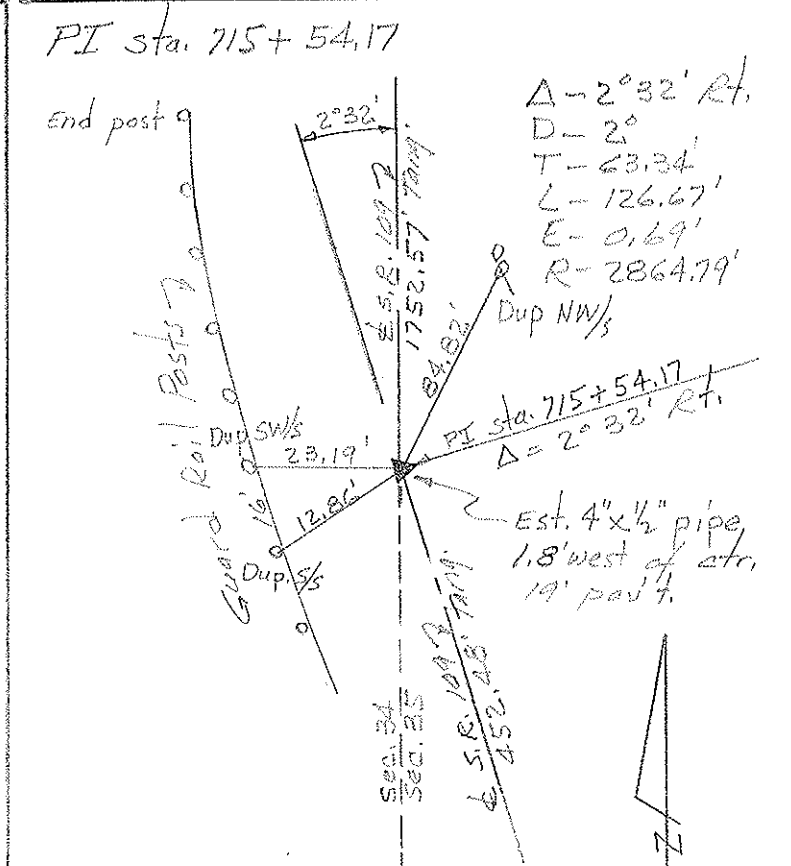 PI sta. 715+54.17
End post
2°32'
Δ - 2°32' Rt.
D - 2°
T - 63.34'
L - 126.67'
E - 0.69'
R - 2864.79'
℄ S.R. 109
1752.57' Tang.
Dup NW/s
84.82'
Guard Rail Posts
PI sta. 715+54.17
Δ = 2°32' Rt.
Dup SW/s
23.19'
16'
12.86'
Dup. S/s
Est. 4"x1/2" pipe
1.8' west of ctr.
19' pav't.
℄ S.R. 109
452.48' Tang.
Sec. 34
Sec. 35
N